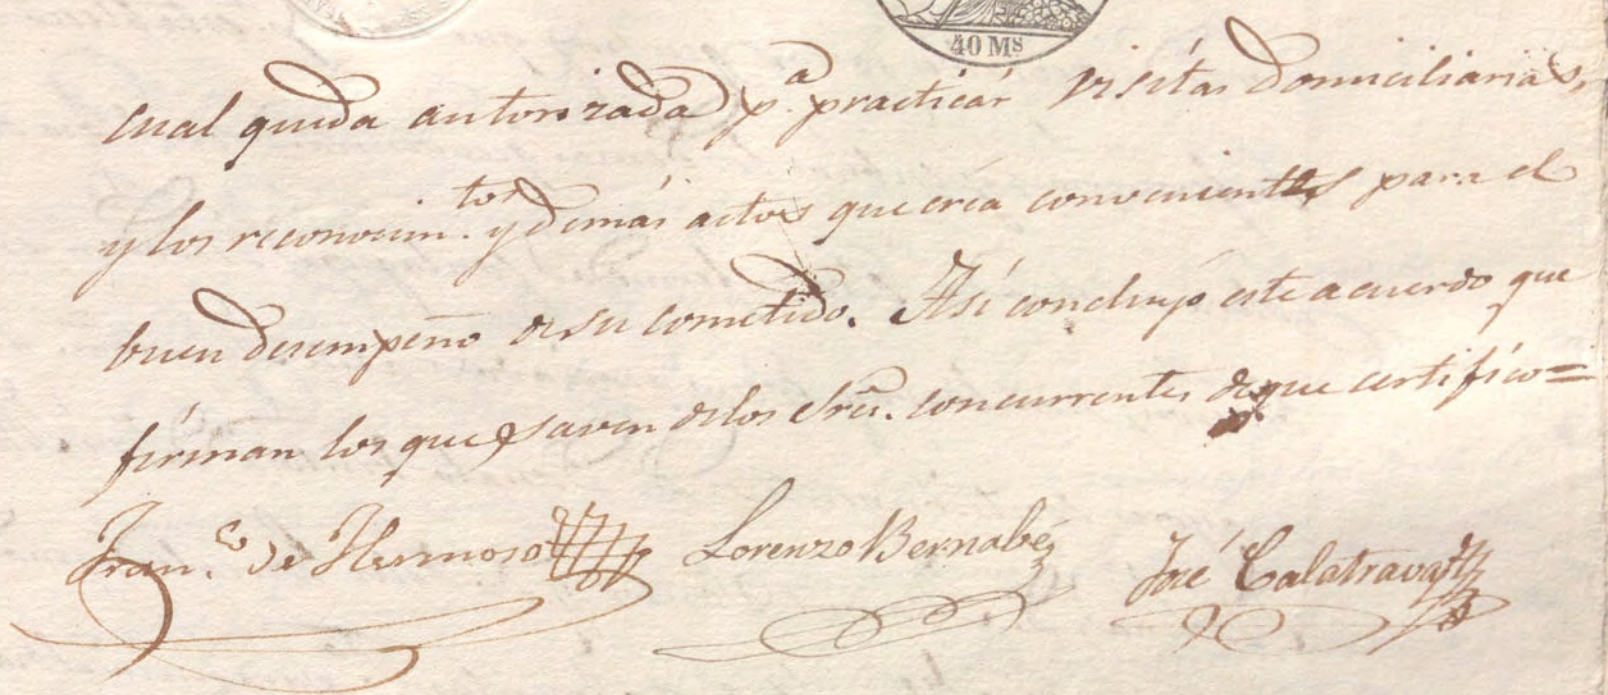 40 Mˢ
cual queda autorizada p.ᵃ practicár visitas domiciliarias,
y los reconocim.ᵗᵒˢ y demás actos que créa convenientes para el
buen desempeño de su cometido. Así concluyó este acuerdo que
fírman los que saven de los Sres. concurrentes de que certifico=
Fran.ᶜᵒ de Hermoso Lorenzo Bernabé José Calatrava